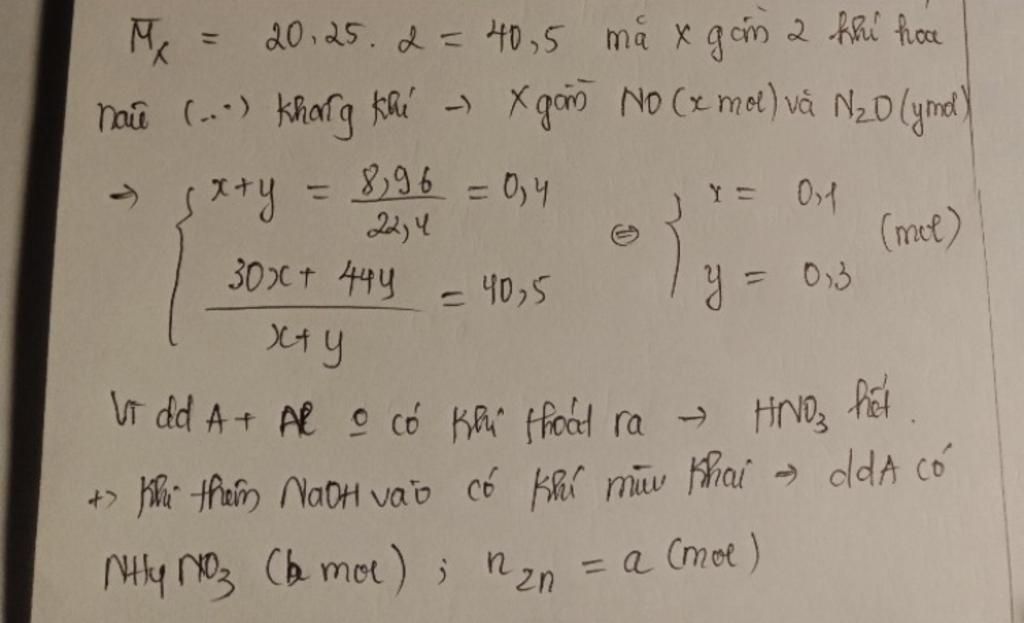 M̄x = 20,25. 2 = 40,5 mà X gồm 2 khí hóa
nâu (...) không khí → X gồm NO (x mol) và N₂O (y mol)
→ { x+y = 8,96/22,4 = 0,4 ⇔ { x = 0,1 (mol)
(30x + 44y)/(x+y) = 40,5 y = 0,3
Vì dd A + Al o có khí thoát ra → HNO₃ hết.
+> Khi thêm NaOH vào có khí mùi khai → dd A có
NH₄NO₃ (b mol) ; n Zn = a (mol)